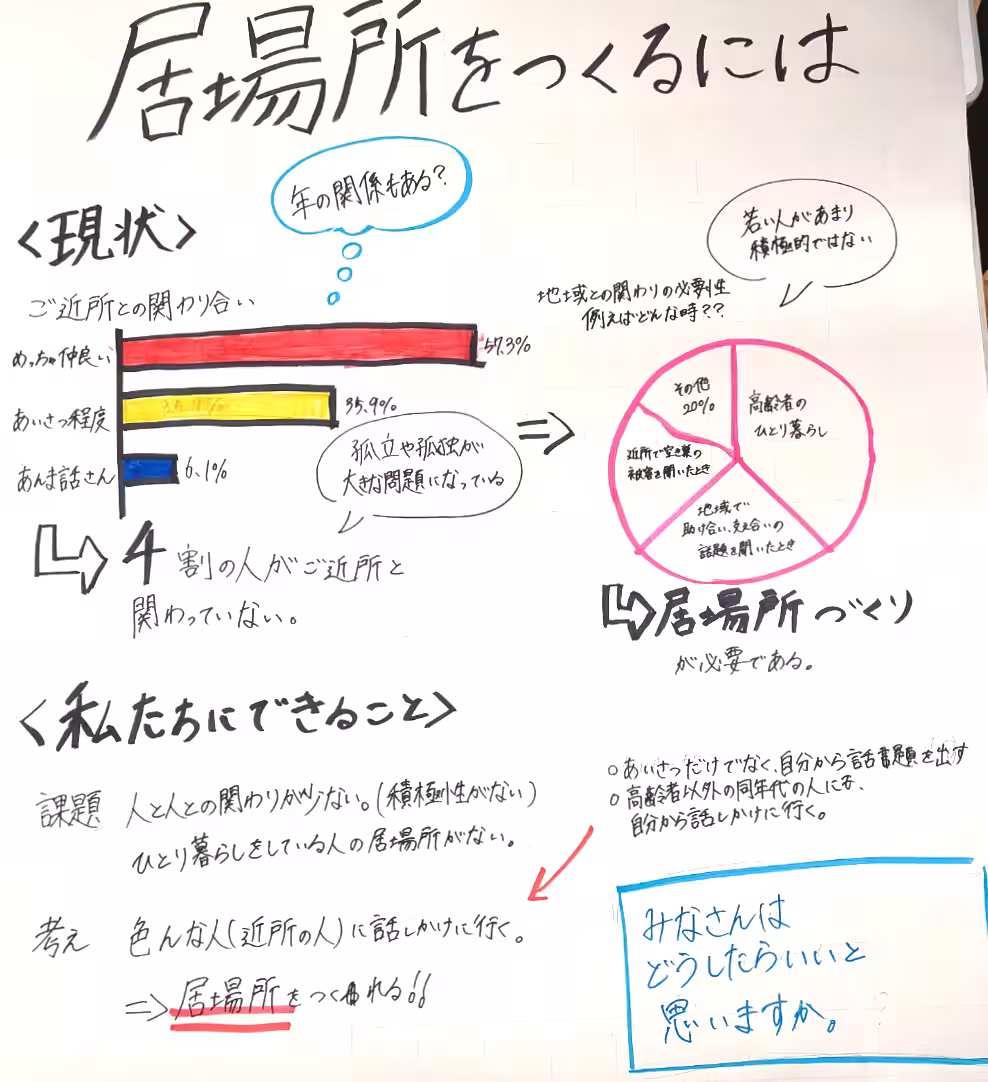 居場所をつくるには
年の関係もある?
<現状>
若い人があまり
積極的ではない
ご近所との関わり合い
地域との関わりの必要性
例えばどんな時??
めっちゃ仲良い
57.3%
あいさつ程度
35.9%
あんま話さん
6.1%
孤立や孤独が
大きな問題になっている
その他
20%
高齢者の
ひとり暮らし
近所で空き巣の
被害を聞いたとき
地域で
助け合い、支え合いの
話題を聞いたとき
4割の人がご近所と
関わっていない。
居場所づくり
が必要である。
<私たちにできること>
課題 人と人との関わりが少ない。(積極性がない)
ひとり暮らしをしている人の居場所がない。
○あいさつだけでなく、自分から話題を出す
○高齢者以外の同年代の人にも、
自分から話しかけに行く。
考え 色んな人(近所の人)に話しかけに行く。
⇒居場所をつくれる!!
みなさんは
どうしたらいいと
思いますか。